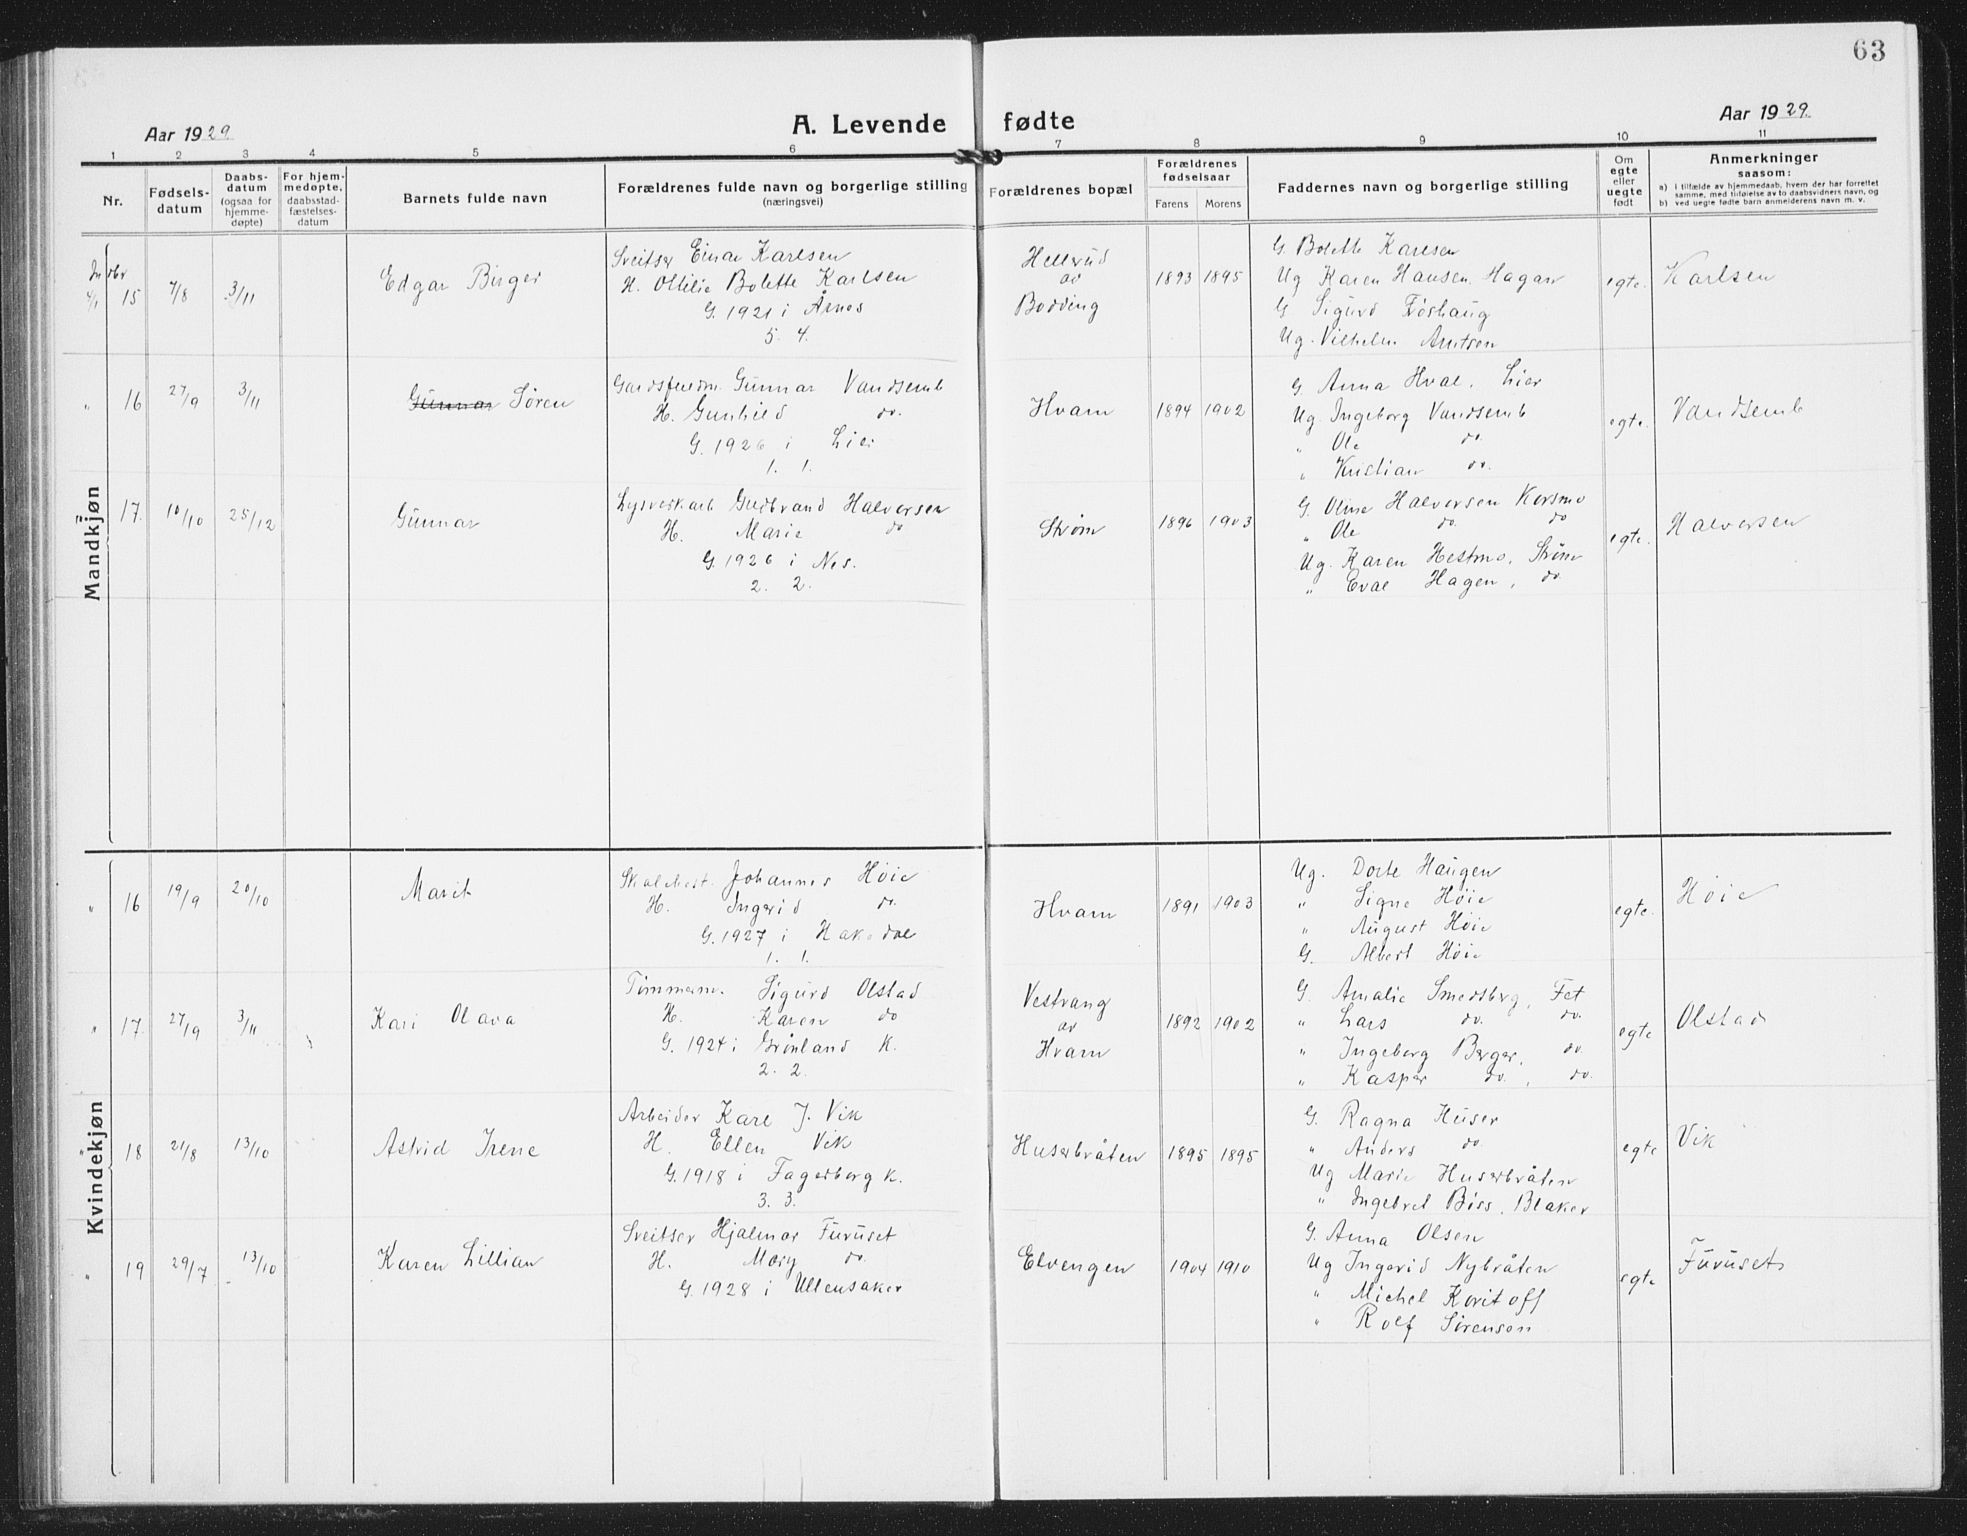 63
Aar 1929.
A. Levende fødte
Aar 1929.
1 2 3 4 5 6 7 8 9 10 11
Nr.
Fødselsdatum
Daabsdatum (ogsaa for hjemmedøpte)
For hjemmedøpte, daabsstadfæstelsesdatum
Barnets fulde navn
Forældrenes fulde navn og borgerlige stilling (næringsvei)
Forældrenes bopæl
Forældrenes fødselsaar
Farens Morens
Faddernes navn og borgerlige stilling
Om egte eller uegte født
Anmerkninger saasom:
a) i tilfælde av hjemmedaab, hvem der har forrettet samme, med tilføielse av to daabsvidners navn, og
b) ved uegte fødte barn anmelderens navn m. v.
Mandkjøn
15 7/8 3/11
Edgar Birger
Sveitser Einar Karlsen
H. Ottilie Bolette Karlsen
G. 1921 i Årnes
5. 4.
Hellerud
av
Bodding
1893 1895
G. Bolette Karlsen
Ug Karen Hansen Hagan
G Sigurd Frøshaug
Ug. Vilhelm Arntsen
egte.
Karlsen
" 16 27/9 3/11
Gunnar Søren
Gardsfuldm. Gunnar Vandsemb
H. Gunhild do.
G. 1926 i Lier
1. 1.
Hvam
1894 1902
G. Anna Hval, Lier
Ug. Ingeborg Vandsemb
" Ole do.
" Kristian do.
egte.
Vandsemb
" 17. 10/10 25/12
Gunnar
Lysverkarb Gudbrand Halvorsen
H. Marie do
G. 1926 i Nes.
2. 2.
Strøm
1896 1903
G. Oline Halvorsen Korsmo
" Ole do. do
Ug. Karen Hestmo, Strøm
" Eval Hagen, do.
egte.
Halvorsen
Kvindekjøn
" 16 19/9 20/10
Marit
Johannes Høie
H. Ingerid do.
G. 1927 i Hakadal
1. 1.
Hvam
1891 1903
Ug. Dorte Haugen
" Signe Høie
" August Høie
G. Albert Høie
egte.
Høie
" 17. 27/9 3/11
Kari Olava
Tømmerm. Sigurd Olstad
H. Karen do
G. 1924 i Grønland K.
2. 2.
Vestvang
av
Hvam
1892 1902
G. Amalie Smedsberg, Fet
" Lars do. do.
" Ingeborg Berger, do.
" Kasper do., do.
egte
Olstad
18 21/8 13/10
Astrid Irene
Arbeider Karl J. Vik
H. Ellen Vik
G. 1918 i Fagerborg K.
3. 3.
Huserbråten
1895 1895
G. Ragna Huser
" Anders do.
Ug Marie Huserbråten
" Ingebret Bøss, Blaker
egte
Vik
" 19 29/7 13/10
Karen Lillian
Sveitser Hjalmar Furuset
H. Mary do.
G. 1928 i Ullensaker
Elvengen
1904 1910
G. Anna Olsen
Ug Ingerid Nybråten
" Michel Koritoff
" Rolf Sørenson
egte
Furuset